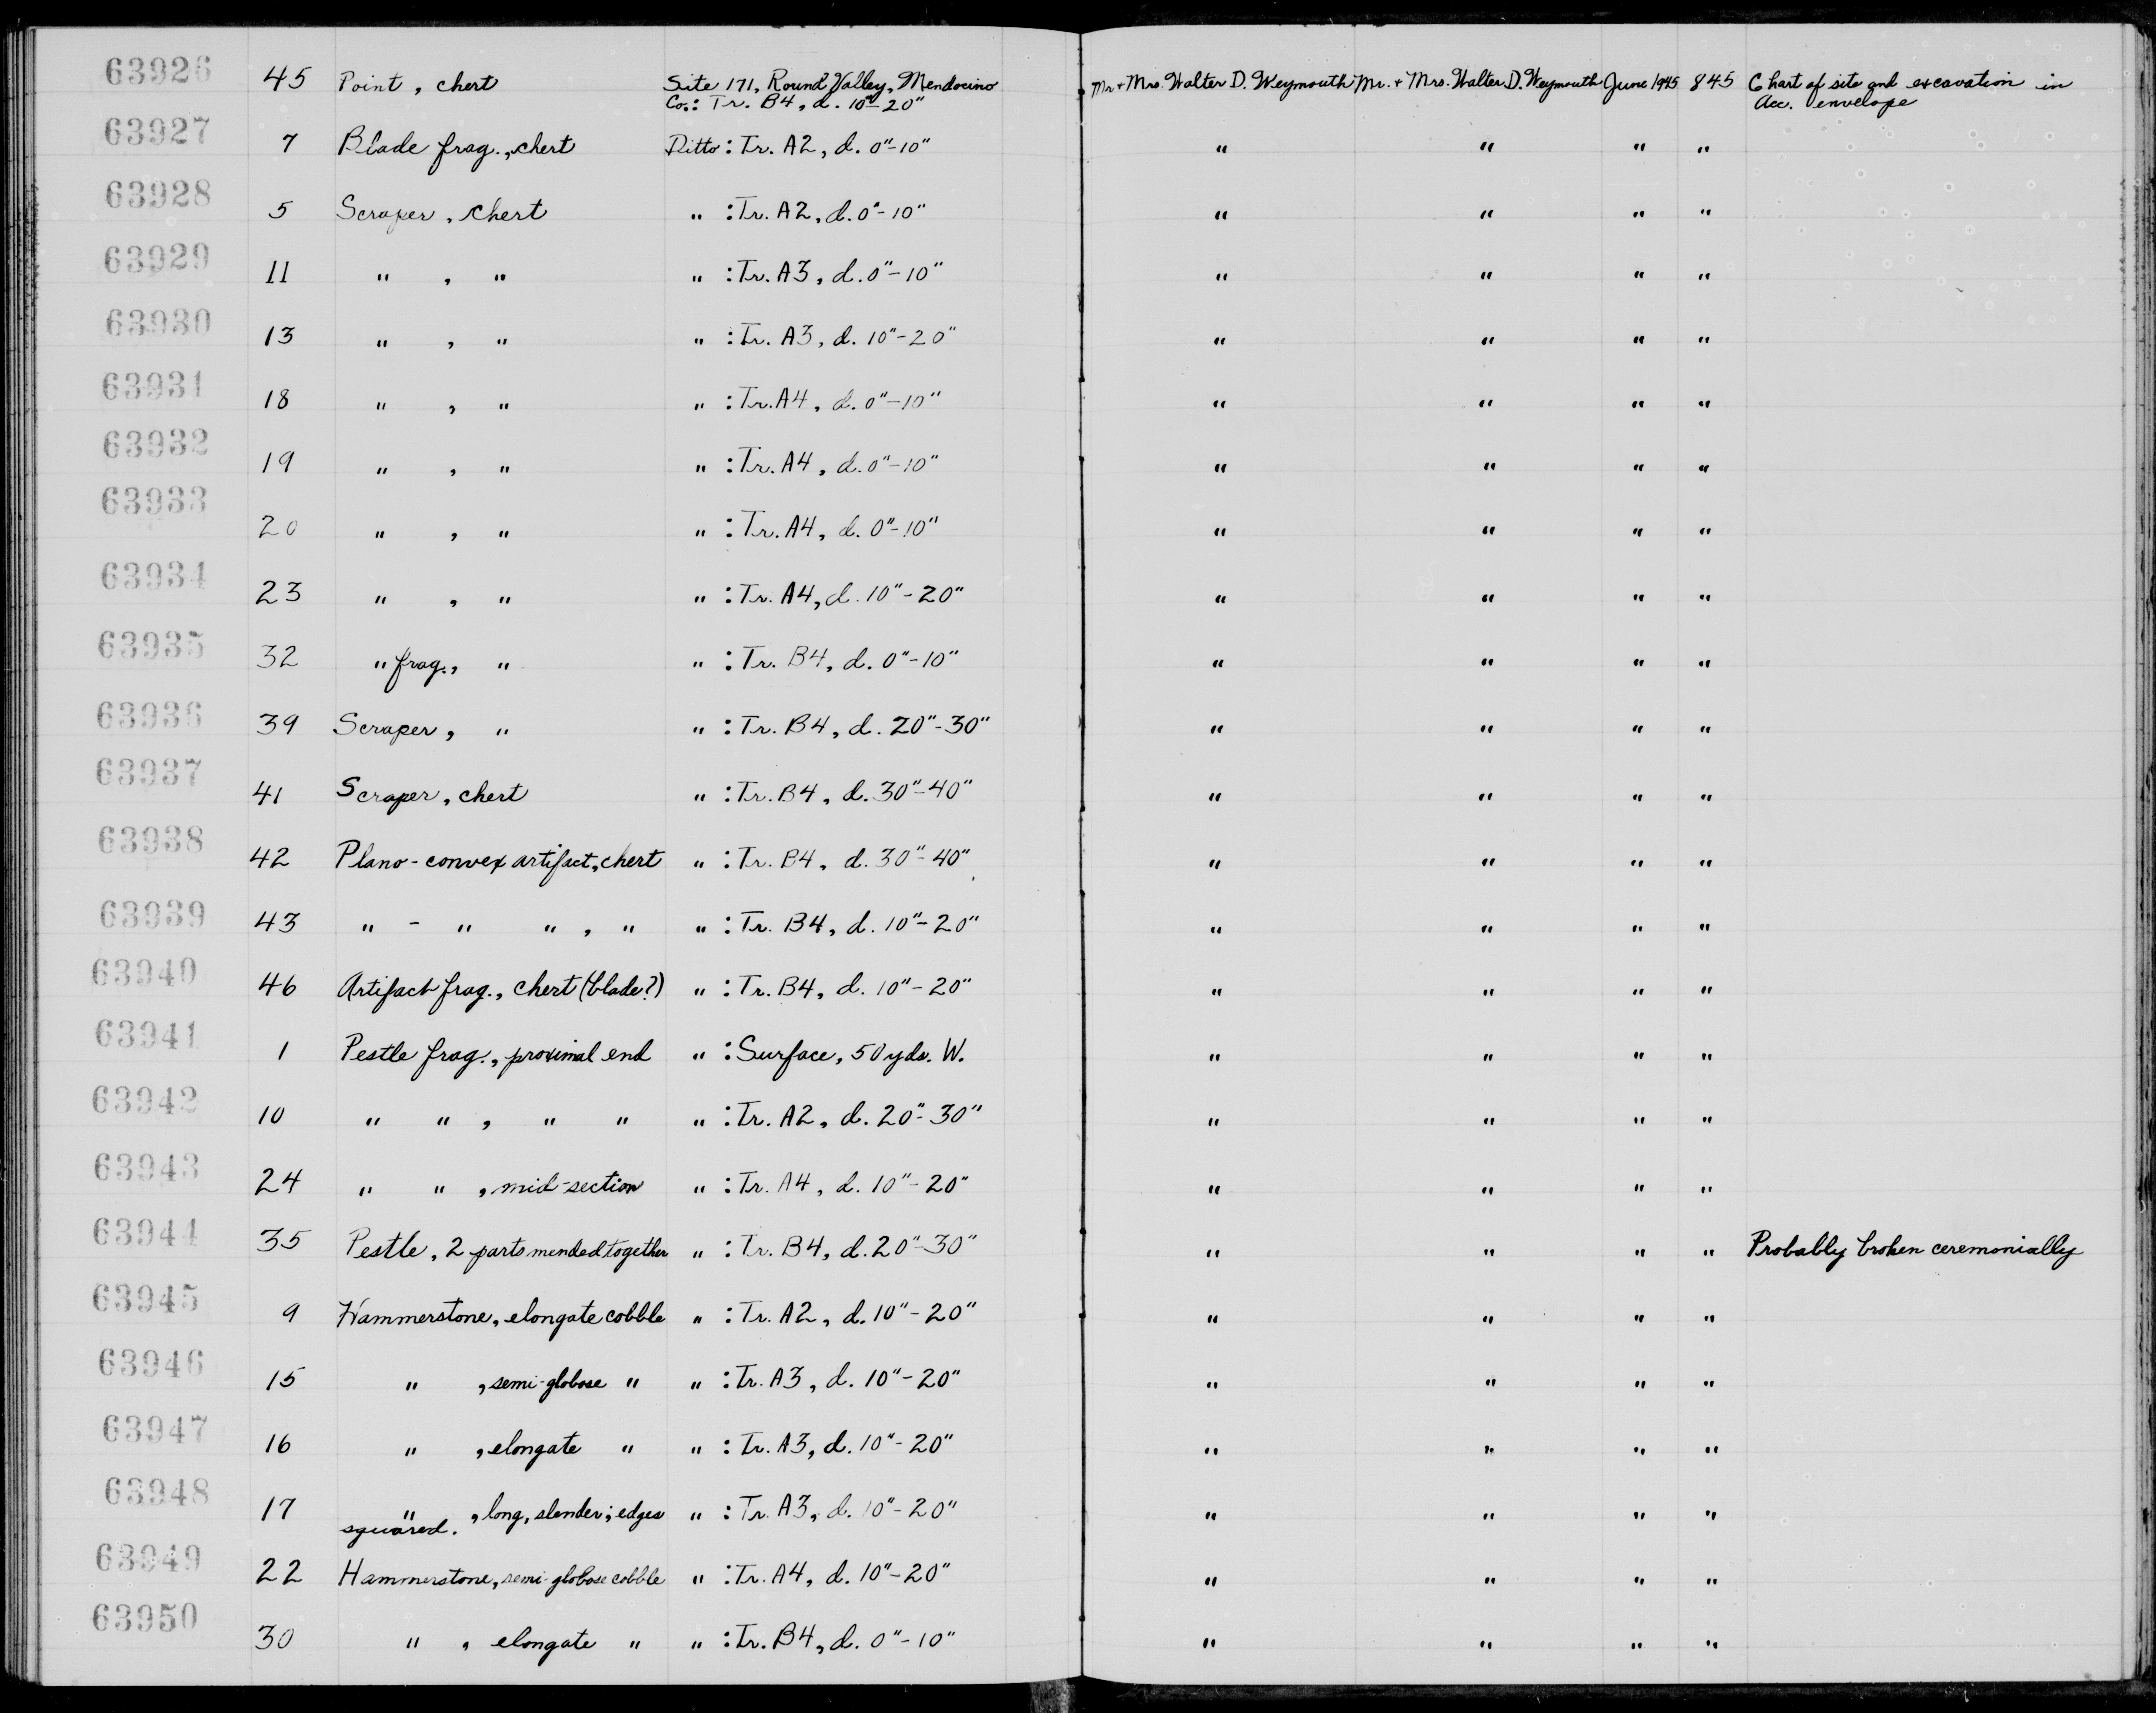 63926 45 Point, chert Site 171, Round Valley, Mendocino Mr + Mrs. Walter D. Weymouth Mr. + Mrs. Walter D. Weymouth June 1945 845 Chart of site and excavation in
Co.: Tr. B4, d. 10"-20" Acc. envelope
63927 7 Blade frag., chert Ditto: Tr. A2, d. 0"-10" " " " "
63928 5 Scraper, chert " : Tr. A2, d. 0"-10" " " " "
63929 11 " , " " : Tr. A3, d. 0"-10" " " " "
63930 13 " , " " : Tr. A3, d. 10"-20" " " " "
63931 18 " , " " : Tr. A4, d. 0"-10" " " " "
63932 19 " , " " : Tr. A4, d. 0"-10" " " " "
63933 20 " , " " : Tr. A4, d. 0"-10" " " " "
63934 23 " , " " : Tr. A4, d. 10"-20" " " " "
63935 32 " frag., " " : Tr. B4, d. 0"-10" " " " "
63936 39 Scraper, " " : Tr. B4, d. 20"-30" " " " "
63937 41 Scraper, chert " : Tr. B4, d. 30"-40" " " " "
63938 42 Plano-convex artifact, chert " : Tr. B4, d. 30"-40" " " " "
63939 43 " - " " , " " : Tr. B4, d. 10"-20" " " " "
63940 46 Artifact frag., chert (blade?) " : Tr. B4, d. 10"-20" " " " "
63941 1 Pestle frag., proximal end " : Surface, 50 yds. W. " " " "
63942 10 " " , " " " : Tr. A2, d. 20"-30" " " " "
63943 24 " " , mid-section " : Tr. A4, d. 10"-20" " " " "
63944 35 Pestle, 2 parts mended together " : Tr. B4, d. 20"-30" " " " " Probably broken ceremonially
63945 9 Hammerstone, elongate cobble " : Tr. A2, d. 10"-20" " " " "
63946 15 " , semi-globose " " : Tr. A3, d. 10"-20" " " " "
63947 16 " , elongate " " : Tr. A3, d. 10"-20" " " " "
63948 17 " , long, slender; edges " : Tr. A3, d. 10"-20" " " " "
squared.
63949 22 Hammerstone, semi-globose cobble " : Tr. A4, d. 10"-20" " " " "
63950 30 " , elongate " " : Tr. B4, d. 0"-10" " " " "